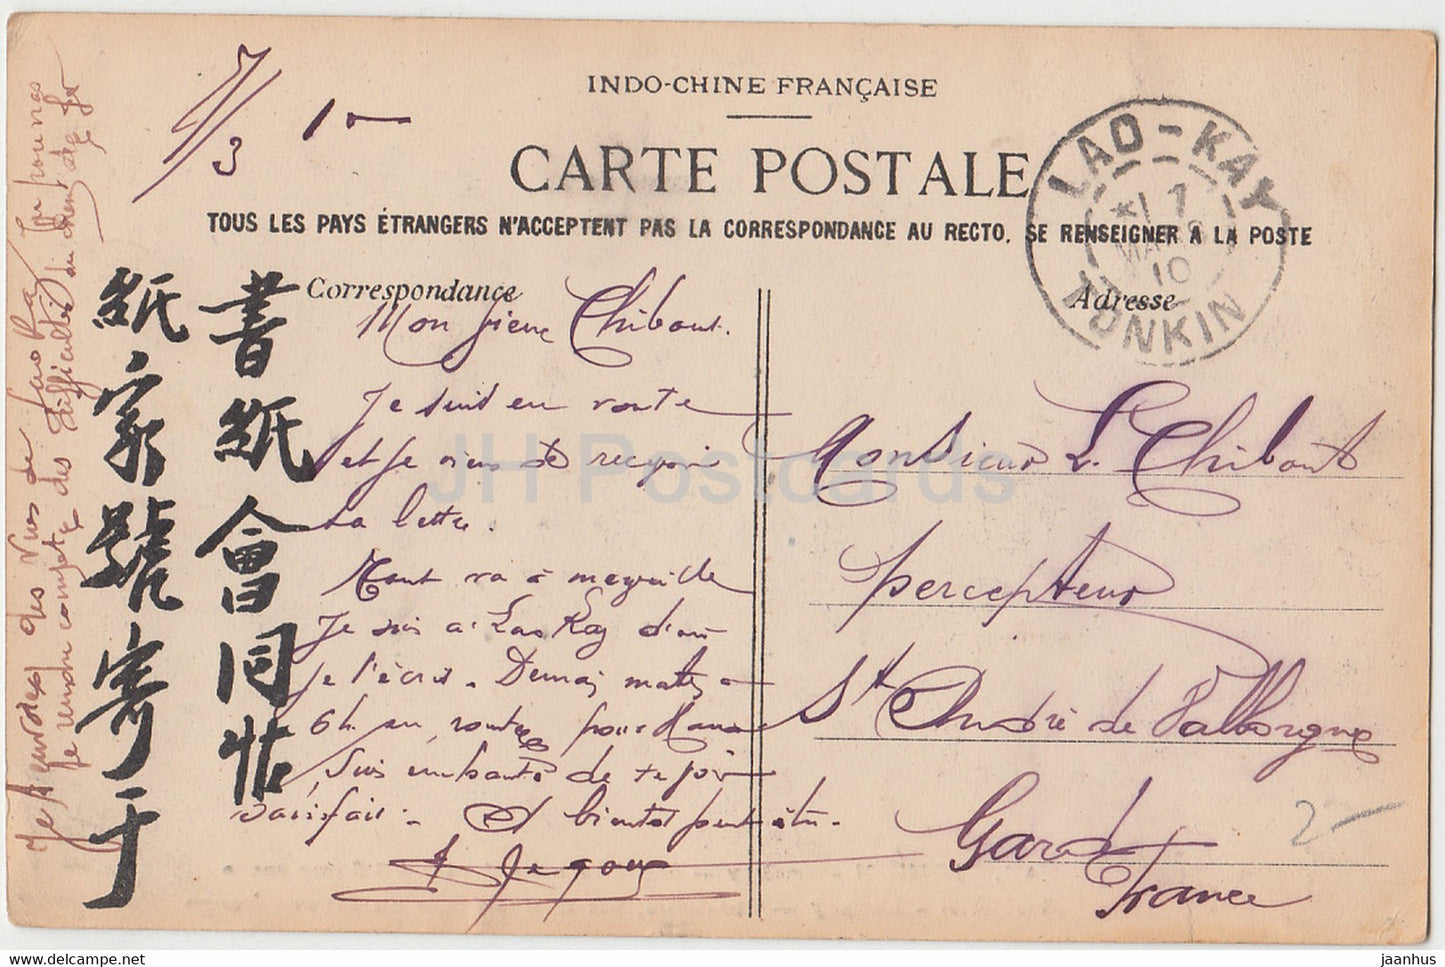 INDO-CHINE FRANÇAISE
7/3 10
CARTE POSTALE
TOUS LES PAYS ÉTRANGERS N'ACCEPTENT PAS LA CORRESPONDANCE AU RECTO. SE RENSEIGNER A LA POSTE
LAO-KAY
7
MARS
10
TONKIN
Correspondance
Adresse
書紙會同
紙家號寄于
Mon Chibout.
Je suis en route
et je viens de reçevoir
ta lettre.
Tout va à merveille
Je suis à Lao Kay d'où
je t'écris. Demain matin à
6h en route pour
Suis enchanté de te
A bientôt peut-être.
Monsieur L. Chibout
percepteur
St André de Valborgne
Gard
France
2
des vues de Lao Kay
compte des difficultés du chemin de fer
JH Postcards
www.delcampe.net
jaanhus